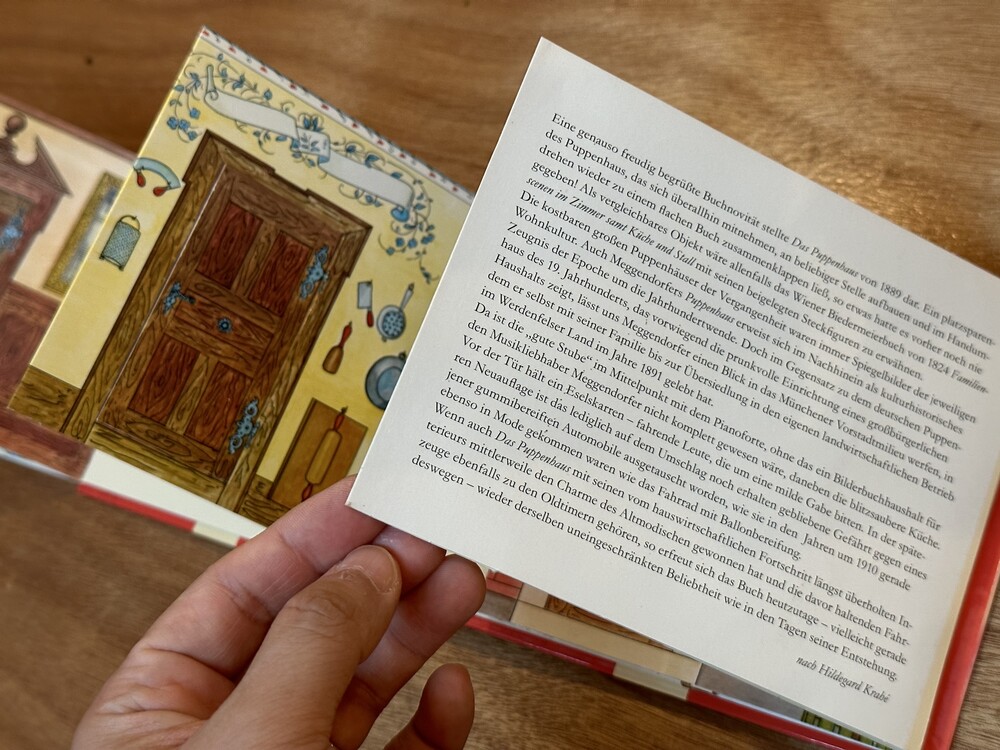 Eine genauso freudig begrüßte Buchnovität stellte Das Puppenhaus von 1889 dar. Ein platzsparen-
des Puppenhaus, das sich überallhin mitnehmen, an beliebiger Stelle aufbauen und im Handum-
drehen wieder zu einem flachen Buch zusammenklappen ließ, so etwas hatte es vorher noch nie
gegeben! Als vergleichbares Objekt wäre allenfalls das Wiener Biedermeierbuch von 1824 Familien-
scenen im Zimmer samt Küche und Stall mit seinen beigelegten Steckfiguren zu erwähnen.
Die kostbaren großen Puppenhäuser der Vergangenheit waren immer Spiegelbilder der jeweiligen
Wohnkultur. Auch Meggendorfers Puppenhaus erweist sich im Nachhinein als kulturhistorisches
Zeugnis der Epoche um die Jahrhundertwende. Doch im Gegensatz zu den deutschen Puppen-
haus des 19. Jahrhunderts, das vorwiegend die prunkvolle Einrichtung eines großbürgerlichen
Haushalts zeigt, lässt uns Meggendorfer einen Blick in das Münchener Vorstadtmilieu werfen, in
dem er selbst mit seiner Familie bis zur Übersiedlung in den eigenen landwirtschaftlichen Betrieb
im Werdenfelser Land im Jahre 1891 gelebt hat.
Da ist die „gute Stube“ im Mittelpunkt mit dem Pianoforte, ohne das ein Bilderbuchhaushalt für
den Musikliebhaber Meggendorfer nicht komplett gewesen wäre, daneben die blitzsaubere Küche.
Vor der Tür hält ein Eselskarren – fahrende Leute, die um eine milde Gabe bitten. In der späte-
ren Neuauflage ist das lediglich auf dem Umschlag noch erhalten gebliebene Gefährt gegen eines
jener gummibereiften Automobile ausgetauscht worden, wie sie in den Jahren um 1910 gerade
ebenso in Mode gekommen waren wie das Fahrrad mit Ballonbereifung.
Wenn auch Das Puppenhaus mit seinen vom hauswirtschaftlichen Fortschritt längst überholten In-
terieurs mittlerweile den Charme des Altmodischen gewonnen hat und die davor haltenden Fahr-
zeuge ebenfalls zu den Oldtimern gehören, so erfreut sich das Buch heutzutage – vielleicht gerade
deswegen – wieder derselben uneingeschränkten Beliebtheit wie in den Tagen seiner Entstehung.
nach Hildegard Krahé